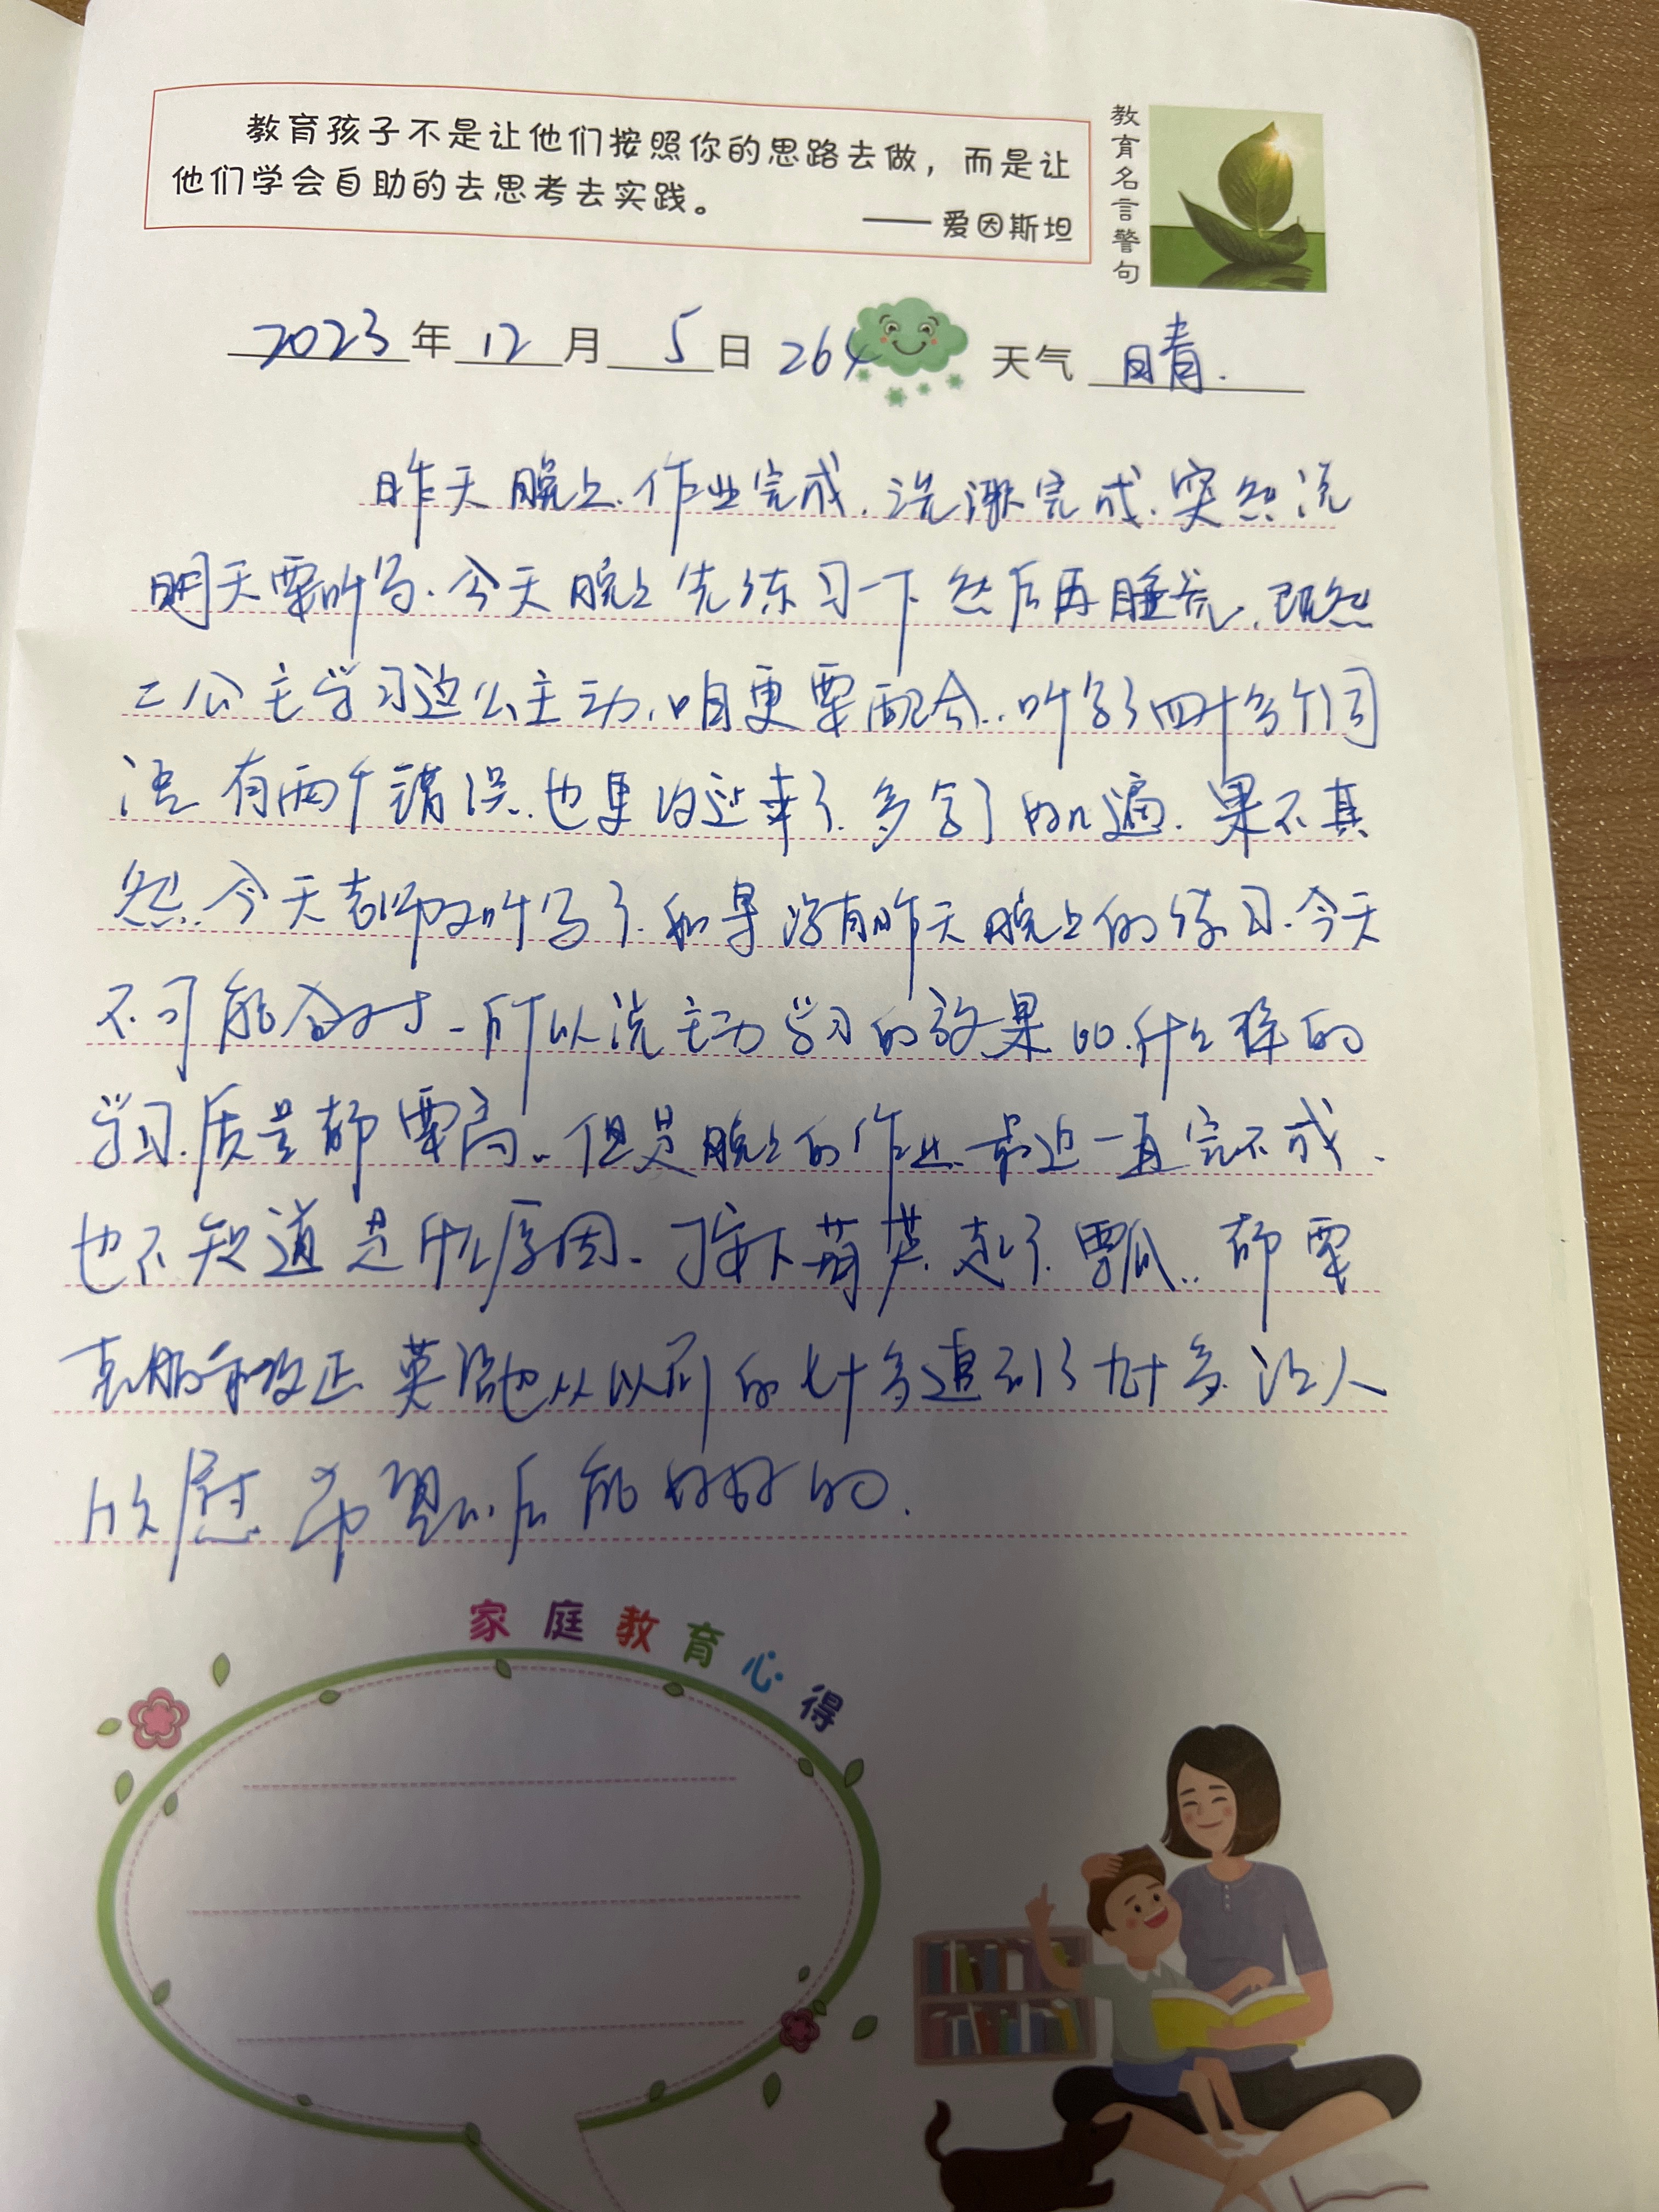 教育孩子不是让他们按照你的思路去做，而是让
他们学会自助的去思考去实践。
——爱因斯坦
教育名言警句
2023年12月5日 264 天气 晴.
昨天晚上.作业完成.洗漱完成.突然说
明天要听写.今天晚上先练习一下然后再睡觉.既然
二公主学习这么主动.咱更要配合..听写了四十多个词
语.有两个错误.也更改过来了.多写了几遍.果不其
然..今天老师又听写了.如果没有昨天晚上的练习.今天
不可能全对.所以说主动学习的效果.什么样的
学习.质量都要高..但是晚上的作业.最近一直完不成.
也不知道是什么原因.按下葫芦.起了瓢..都要
克服和改正.英语也从以前的七十多追到了九十多.让人
欣慰.希望以后能好好的.
家庭教育心得